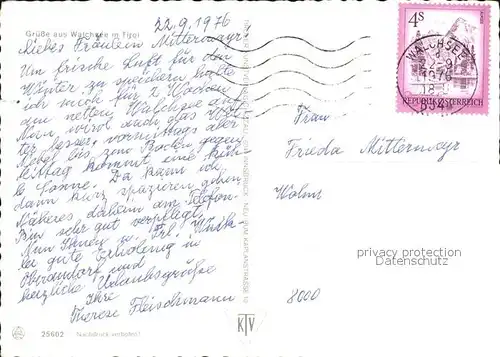 Grüße aus Walchsee in Tirol
22.9.1976
Liebes Fräulein Mittermayr
Um frische Luft für den
Winter zu speichern halte
ich mich für 2 Wochen
am netten Walchsee auf
Nun wird auch das Wet-
ter besser, vormittags aber
Nebel bis zum Boden gegen
Mittag kommt eine
Sonne. Da kann ich
dann kurz spazieren gehen.
Näheres daheim am Telefon.
Bin sehr gut verpflegt.
Nun Ihnen u. Frl.
gute Erholung in
Oberndorf und
herzliche Urlaubsgrüße
Ihre
Therese Fleischmann
25602 Nachdruck verboten!
KTV
4S
REPUBLIK ÖSTERREICH
WALCHSEE
22.-9.
1976
18
Frau
Frieda Mittermayr
Wohnt
8000
privacy protection
watermark